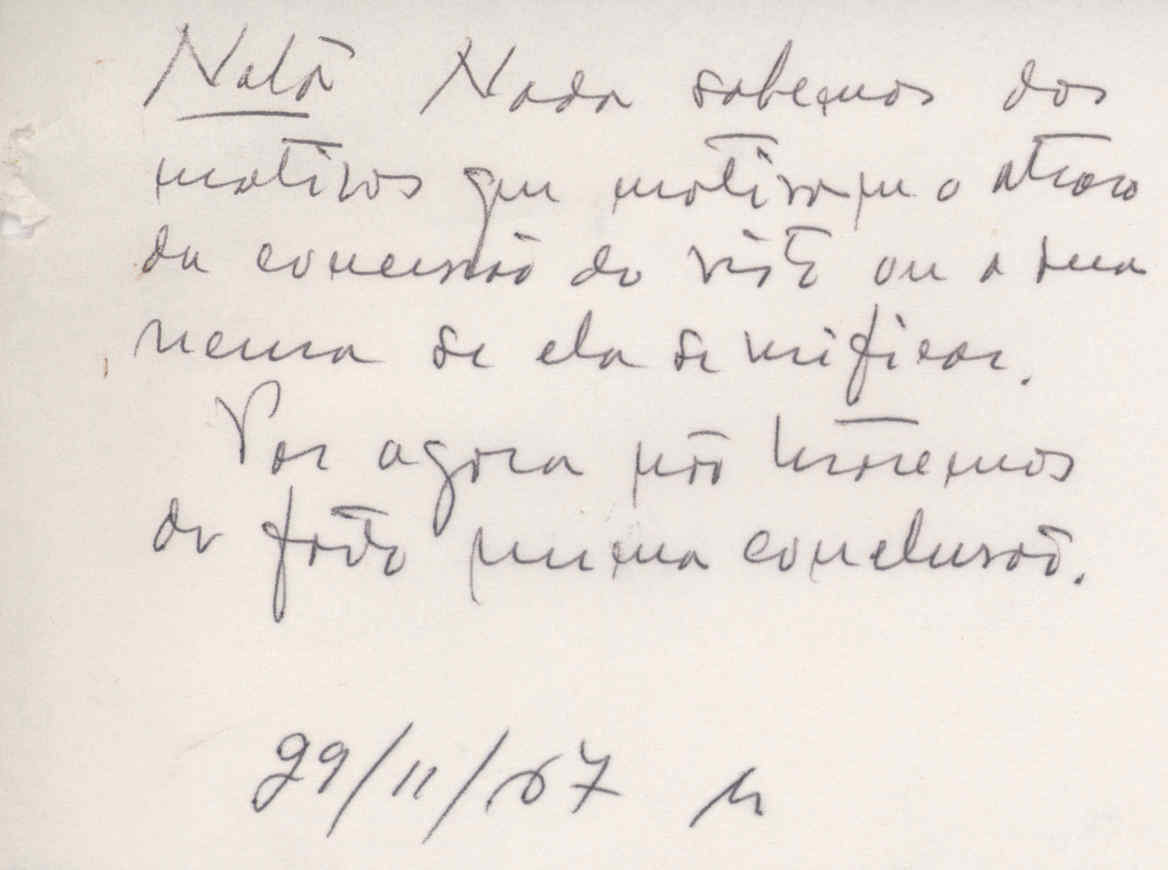 Nota Nada sabemos dos
motivos que motivam o atraso
da concessão do visto ou a sua
se ela se verificar.
Por agora não tiraremos
do facto nenhuma conclusão.
29/11/67